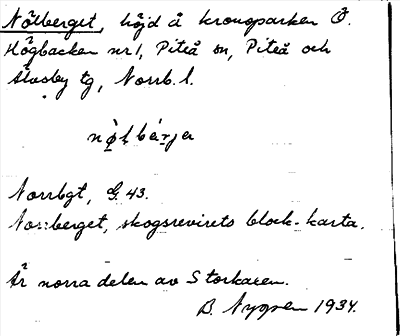 Nölberget, höjd å kronoparken Ö.
Högbacken nr 1, Piteå sn, Piteå och
Älvsby tg, Norrb. l.
Norrbgt, G 43.
Norrberget, skogsrevirets block-karta.
Är norra delen av Storkacen.
B. Nygren 1934.